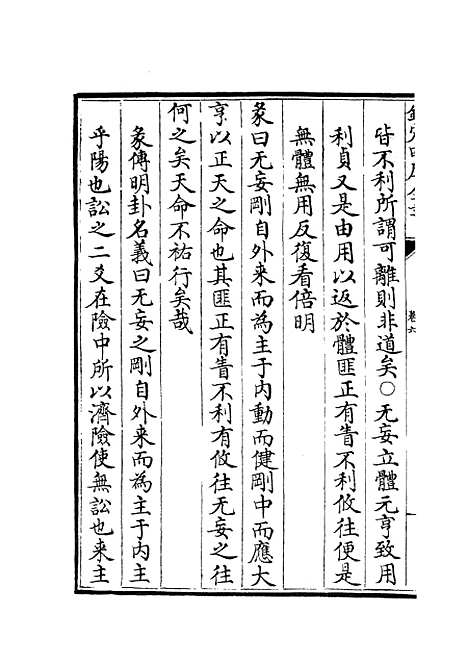 欽定四庫全書
卷六
皆不利所謂可離則非道矣○无妄立體元亨致用
利貞又是由用以返於體匪正有眚不利攸往便是
無體無用反復看倍明
彖曰无妄剛自外来而為主于内動而健剛中而應大
亨以正天之命也其匪正有眚不利有攸往无妄之往
何之矣天命不祐行矣哉
彖傳明卦名義曰无妄之剛自外来而為主于内主
乎陽也訟之二爻在險中所以濟險使無訟也来主